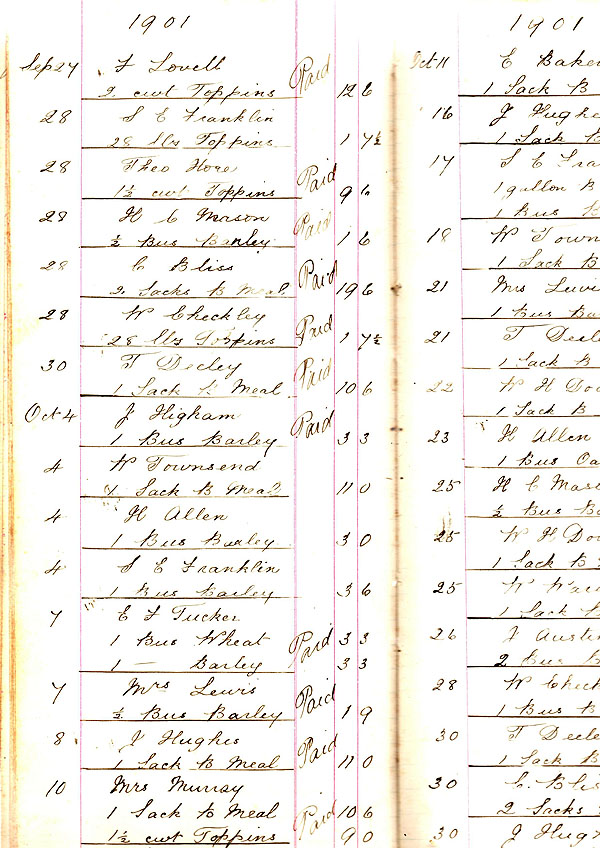 1901
Sep 27 F Lovell Paid
2 cwt Toppins 12 6
28 S E Franklin
28 lbs Toppins 1 7½
28 Theo Hore Paid
1½ cwt Toppins 9 6
28 H C Mason Paid
½ Bus Barley 1 6
28 C Bliss Paid
2 Sacks B Meal 19 6
28 W Checkley Paid
28 lbs Toppins 1 7½
30 T Deeley Paid
1 Sack B Meal 10 6
Oct 4 J Higham Paid
1 Bus Barley 3 3
4 W Townsend
1 Sack B Meal 11 0
4 H Allen
1 Bus Barley 3 0
4 S E Franklin
1 Bus Barley 3 6
7 E F Tucker
1 Bus Wheat Paid 3 3
1 — Barley 3 3
7 Mrs Lewis Paid
½ Bus Barley 1 9
8 J Hughes Paid
1 Sack B Meal 11 0
10 Mrs Murray
1 Sack B Meal Paid 10 6
1½ cwt Toppins 9 0
1901
Oct 11 E Baker
1 Sack B
16 J Hughe
1 Sack B
17 S E Fra
1 gallon B
1 Bus
18 W Town
1 Sack B
21 Mrs Lewi
1 Bus Ba
21 T Deel
1 Sack B
22 W H Do
1 Sack B
23 H Allen
1 Bus Oa
25 H C Maso
½ Bus Ba
25 W H Do
1 Sack B
25 W
1 Sack
26 J Austin
2 Bus B
28 W Check
1 Bus B
30 T Deele
1 Sack B
30 C. Blis
2 Sacks
30 J Hug